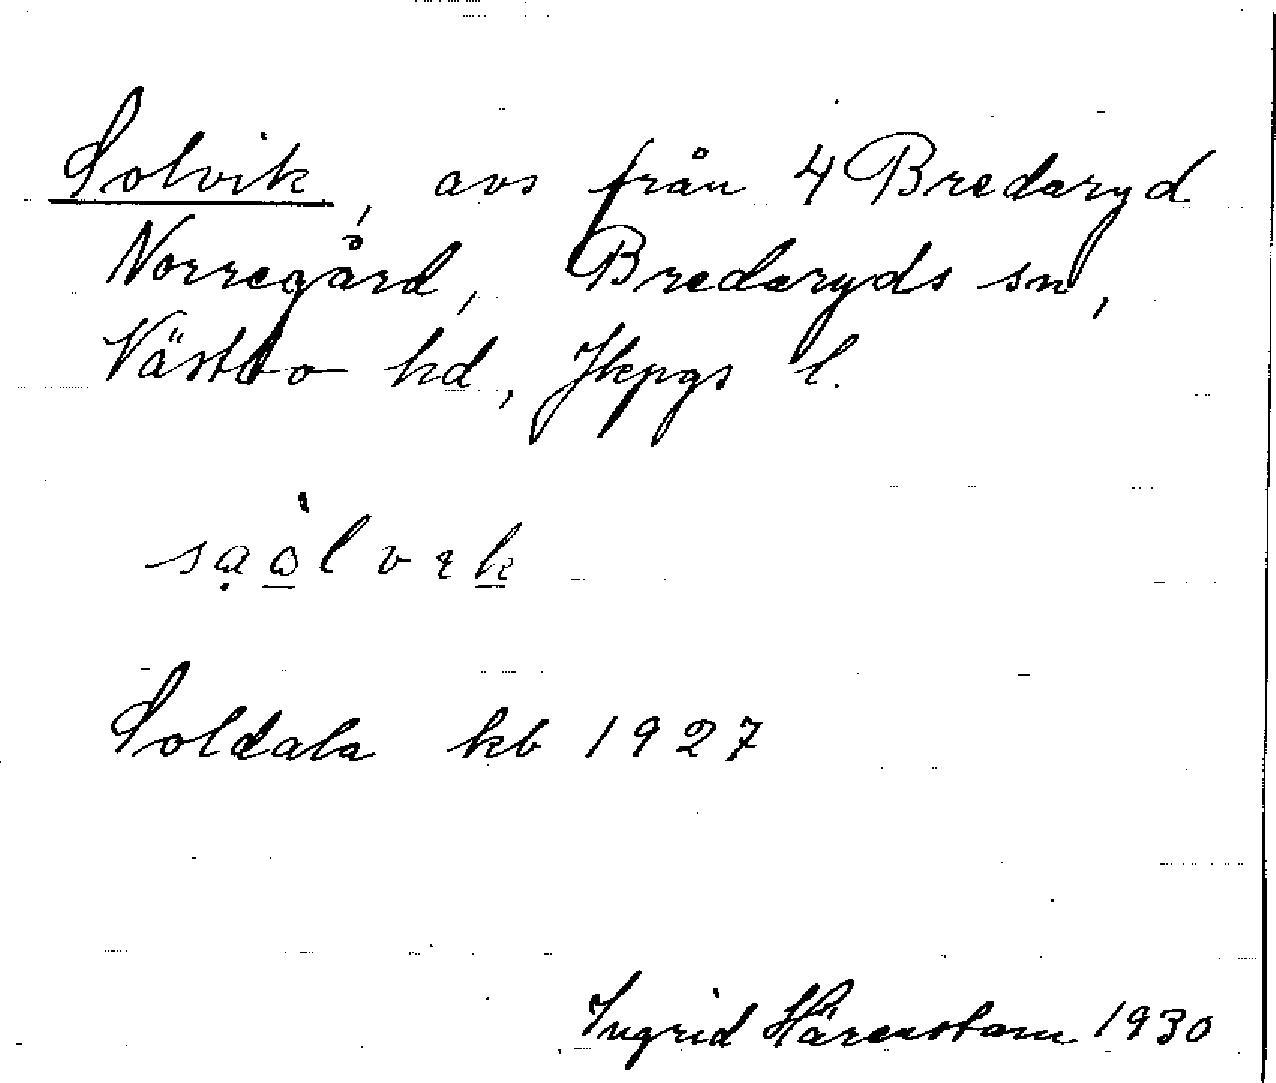 Solvik, avs från 4 Bredaryd
Norregård, Bredaryds sn,
Västbo hd, Jkpgs l.
Soldala kb 1927
Ingrid Härenstam 1930